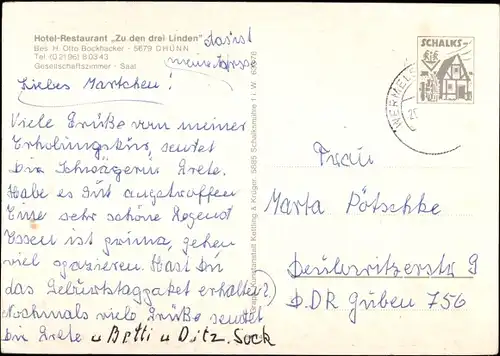 Hotel-Restaurant „Zu den drei Linden"
Bes. H. Otto Bockhacker - 5679 DHÜNN
Tel. (0 21 96) 8 03 43
Gesellschaftszimmer - Saal
das ist
meine Adresse
Liebes Martchen!
Viele Grüße von meiner
Erholungskur, sendet
Dir Schwägerin Grete.
Habe es gut angetroffen
Eine sehr schöne Gegend
Essen ist prima, gehen
viel spazieren. Hast Du
das Geburtstagpaket erhalten?
Nochmals viele Grüße sendet
Dir Grete u Betti u Ditz. Sock
Kunstanstalt Kettling & Krüger, 5885 Schalksmühle 1 i. W.
SCHALKS-
WERMELS
Frau
Marta Pötschke
Deulowitzerstr 9
DDR Guben 756